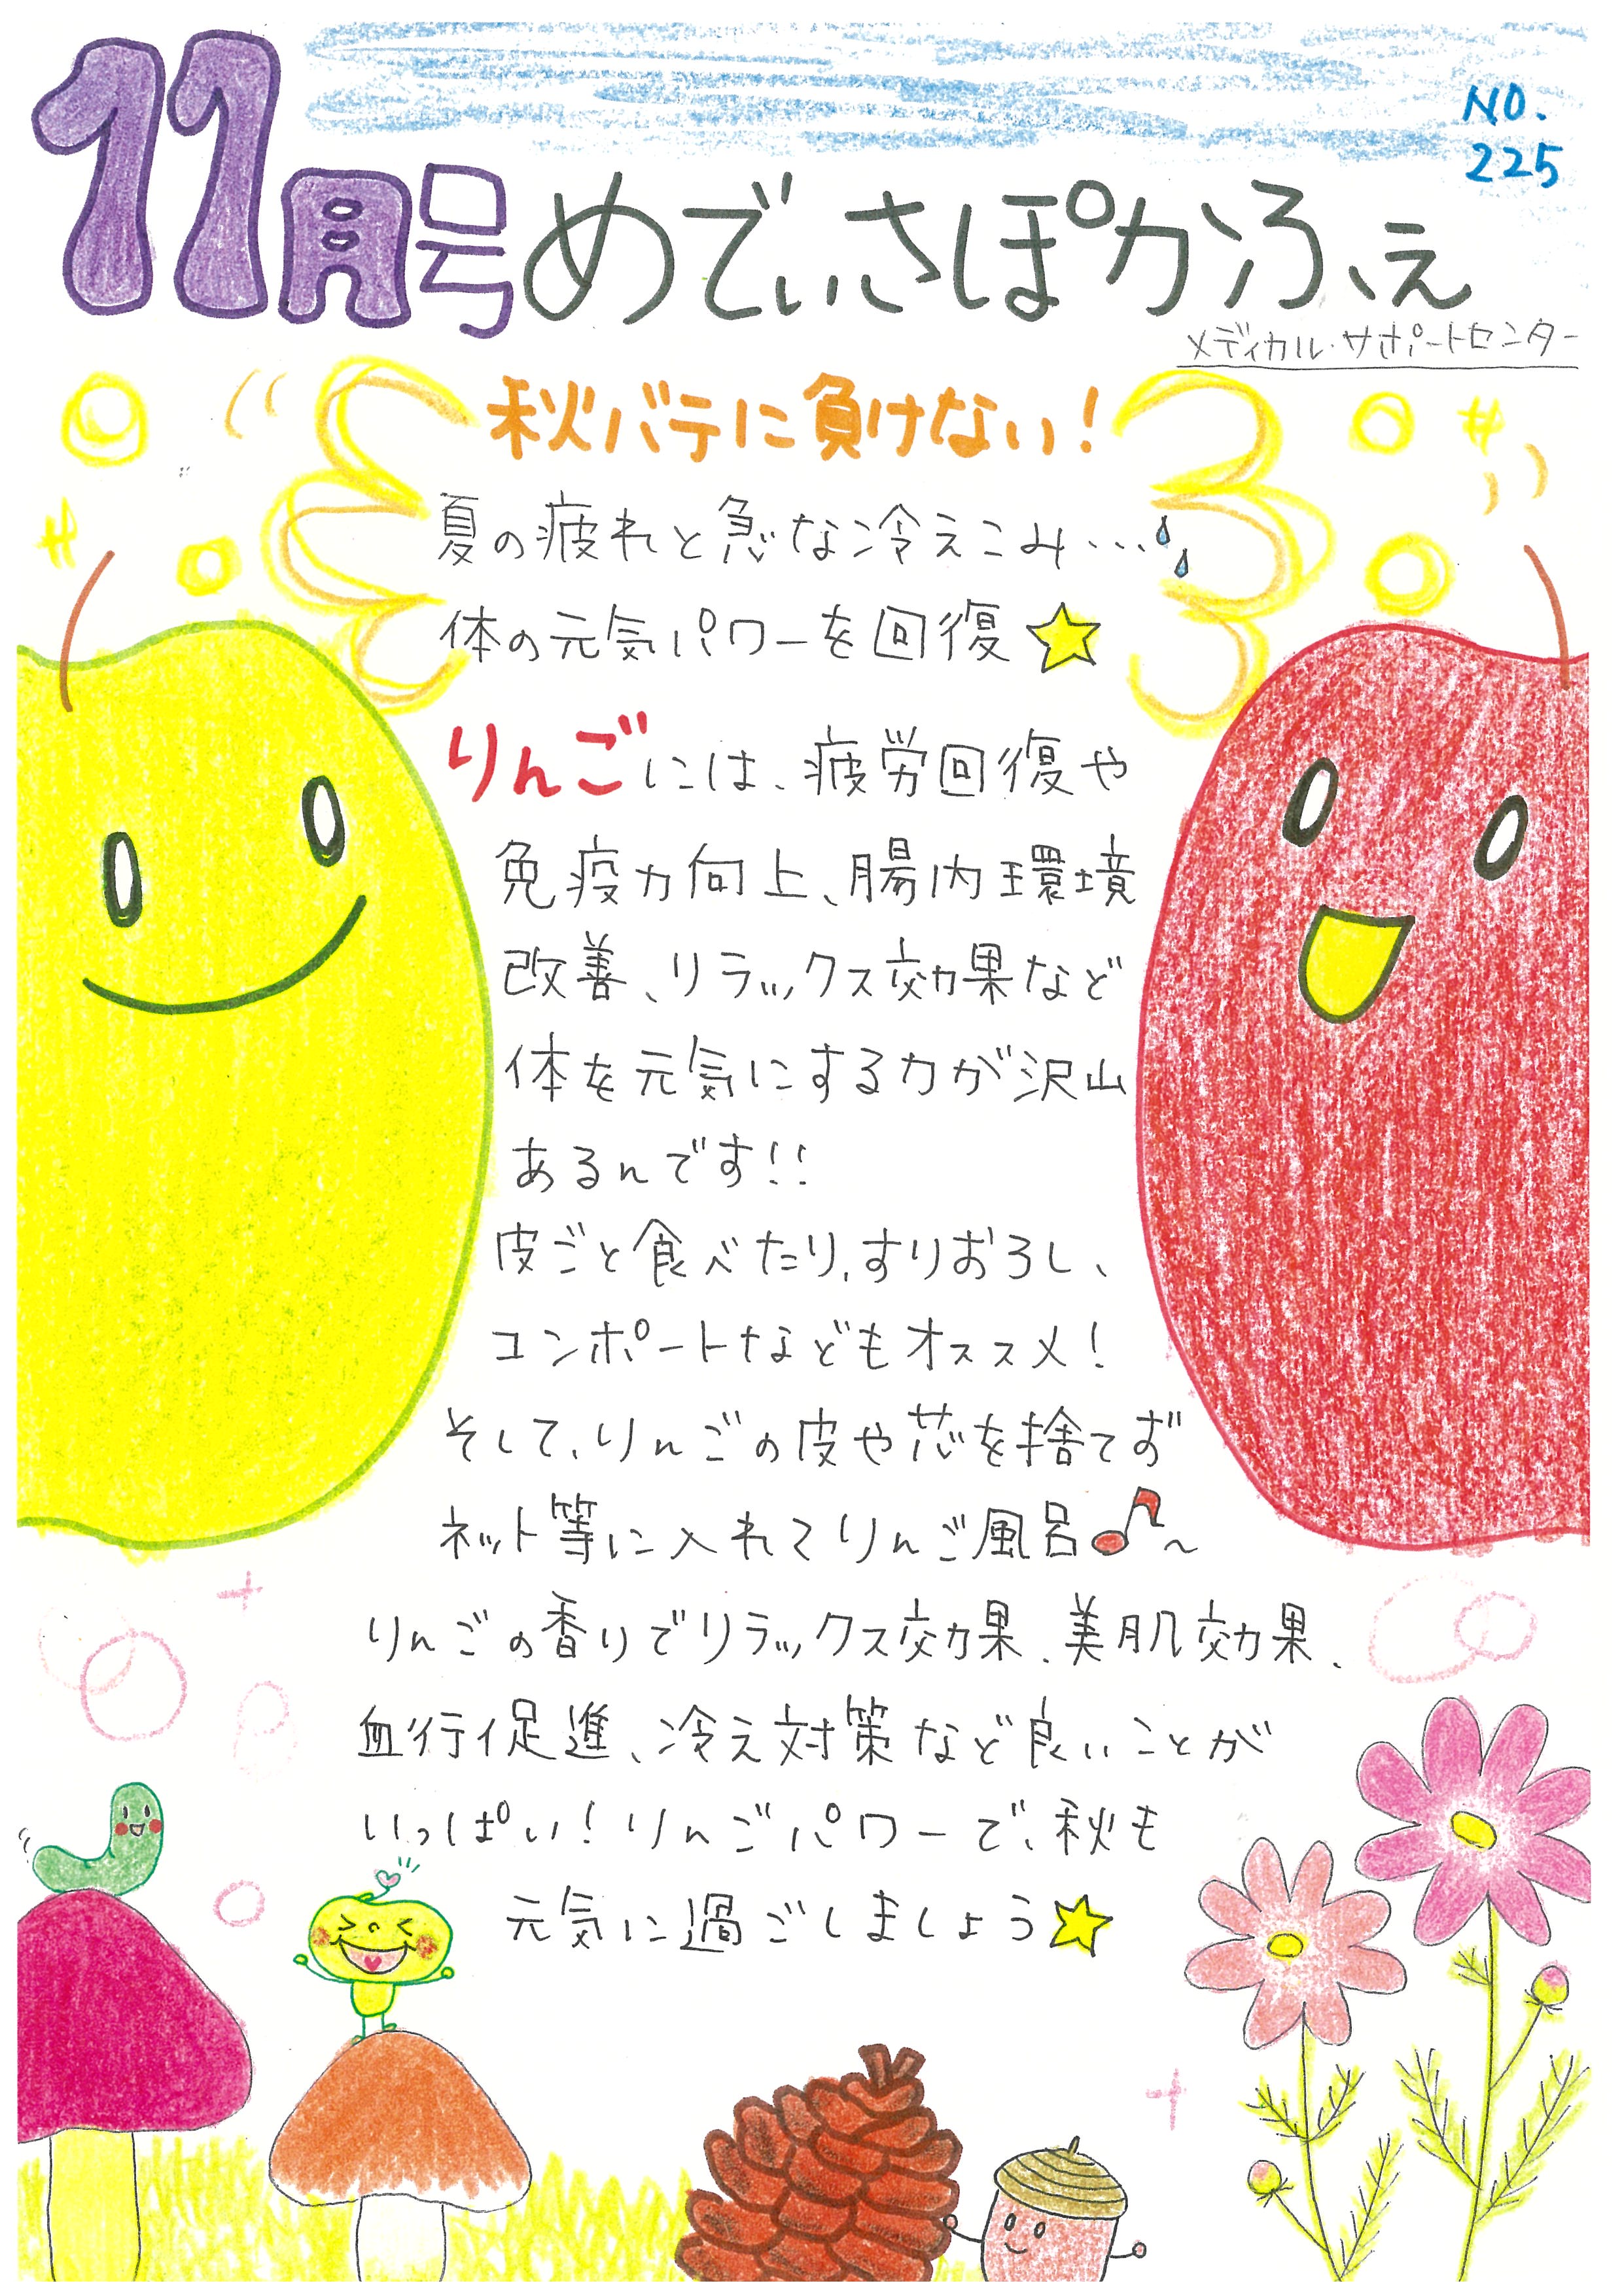 11月号 めでぃさぽかふぇ
NO.
225
メディカル・サポートセンター
秋バテに負けない!
夏の疲れと急な冷えこみ…
体の元気パワーを回復☆
りんごには、疲労回復や
免疫力向上、腸内環境
改善、リラックス効果など
体を元気にする力が沢山
あるんです!!
皮ごと食べたり、すりおろし、
コンポートなどもオススメ!
そして、りんごの皮や芯を捨てず
ネット等に入れてりんご風呂♪~
りんごの香りでリラックス効果、美肌効果、
血行促進、冷え対策など良いことが
いっぱい!りんごパワーで、秋も
元気に過ごしましょう☆